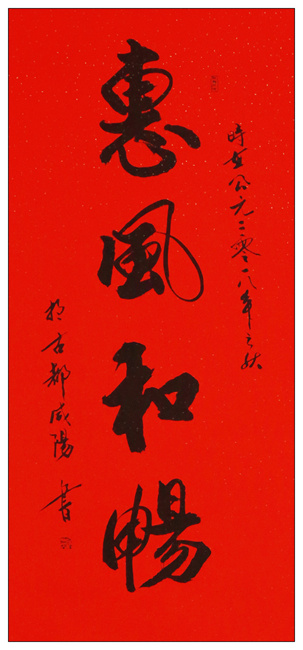 惠風和暢
時在公元二零一八年之秋
於古都咸陽